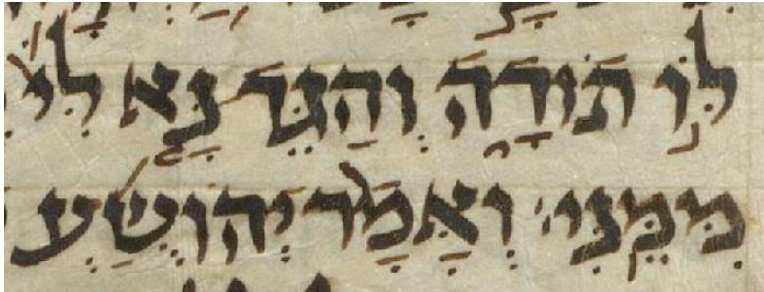 לֹּו תֹודָה וְהַגֶּד נָּא לִי
מִמֶּנִּי׃ וְאָמַר יְהוֹשֻׁעַ